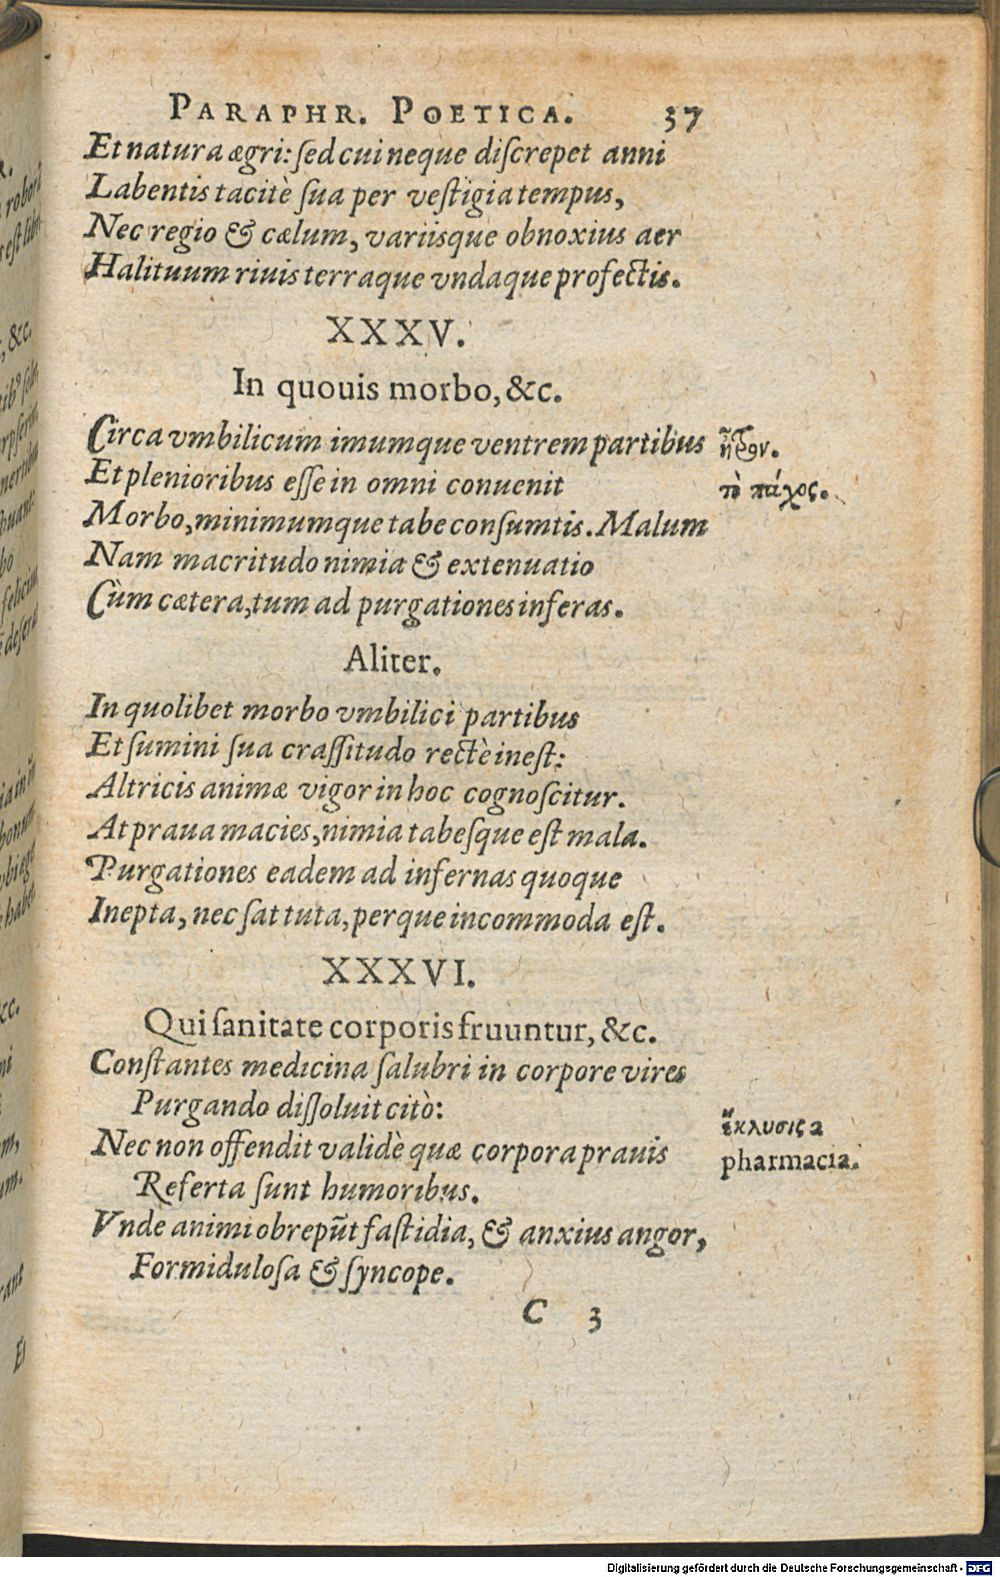 PARAPHR. POETICA. 37
Et natura ægri: ſed cui neque diſcrepet anni
Labentis tacitè ſua per veſtigia tempus,
Nec regio & cælum, variisque obnoxius aer
Halituum riuis terraque vndaque profectis.
XXXV.
In quouis morbo, &c.
Circa vmbilicum imumque ventrem partibus ἦτρον.
Et plenioribus eſſe in omni conuenit τὸ πάχος.
Morbo, minimumque tabe conſumtis. Malum
Nam macritudo nimia & extenuatio
Cùm cætera, tum ad purgationes inferas.
Aliter.
In quolibet morbo vmbilici partibus
Et ſumini ſua craſſitudo rectè ineſt:
Altricis animæ vigor in hoc cognoſcitur.
At praua macies, nimia tabeſque eſt mala.
Purgationes eadem ad infernas quoque
Inepta, nec ſat tuta, perque incommoda eſt.
XXXVI.
Qui ſanitate corporis fruuntur, &c.
Conſtantes medicina ſalubri in corpore vires
Purgando diſſoluit citò:
ἔκλυσις a
Nec non offendit validè quæ corpora prauis
pharmacia.
Referta ſunt humoribus.
Vnde animi obrepūt faſtidia, & anxius angor,
Formiduloſa & ſyncope.
C 3
Digitalisierung gefördert durch die Deutsche Forschungsgemeinschaft - DFG